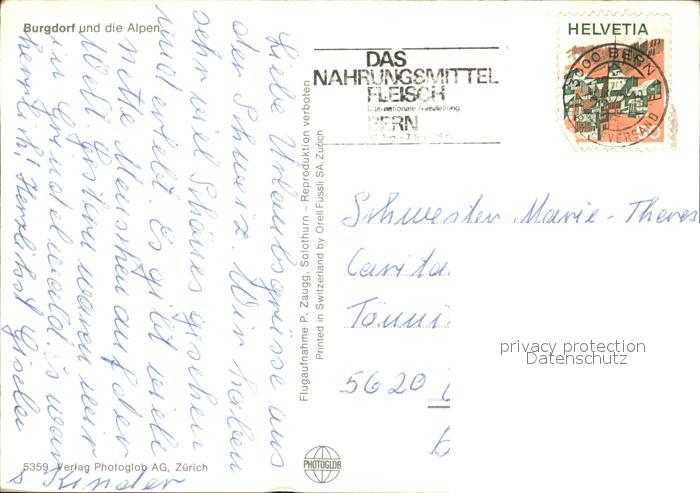 Burgdorf und die Alpen
Liebe Urlaubsgrüsse aus
der Schweiz. Wir haben
sehr viel Schönes gesehen
und erlebt. Es gibt viele
nette Menschen auf der
Welt. Gestern waren wir
in Grindelwald. Es war
herrlich! Herzlichst Gisela
& Kinder
5359 Verlag Photoglob AG, Zürich
Flugaufnahme P. Zaugg, Solothurn – Reproduktion verboten
Printed in Switzerland by Orell Füssli SA, Zürich
PHOTOGLOB
DAS
NAHRUNGSMITTEL
FLEISCH
Internationale Ausstellung
BERN
HELVETIA
3000 BERN
VERSAND
Schwester Marie-Theres
Carita
Tönni
5620
privacy protection
Datenschutz